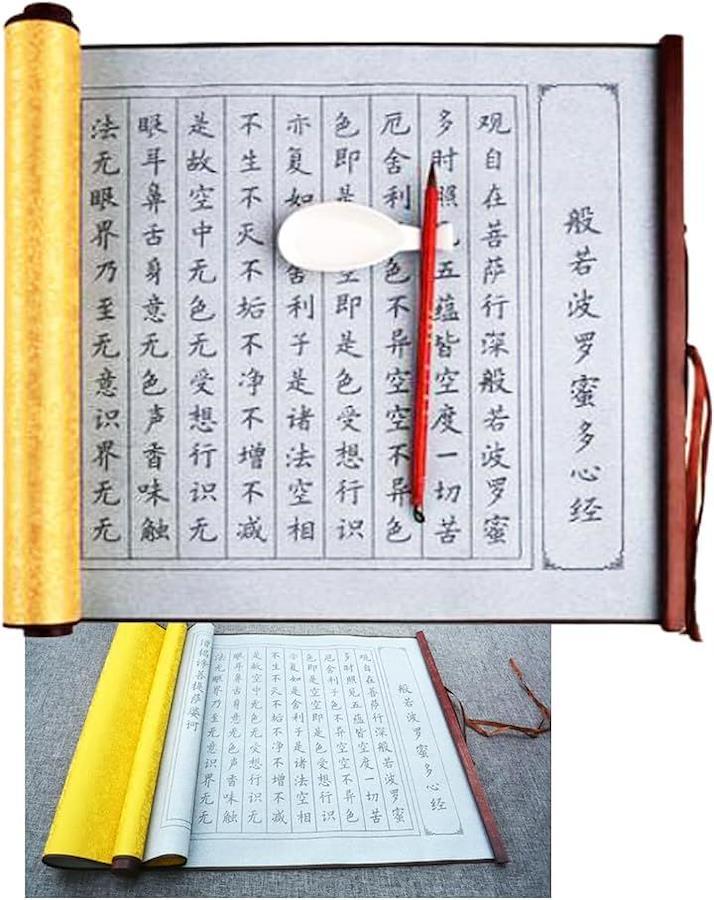 般若波罗蜜多心经
观自在菩萨行深般若波罗蜜
多时照五蕴皆空度一切苦
厄舍利色不异空空不异色
色即是空即是色受想行识
亦复如舍利子是诸法空相
不生不灭不垢不净不增不减
是故空中无色无受想行识无
眼耳鼻舌身意无色声香味触
法无眼界乃至无意识界无无
般若波罗蜜多心经
观自在菩萨行深般若波罗蜜
多时照见五蕴皆空度一切苦
厄舍利子色不异空空不异色
色即是空空即是色受想行识
亦复如是舍利子是诸法空相
不生不灭不垢不净不增不减
是故空中无色无受想行识无
眼耳鼻舌身意无色声香味触
法无眼界乃至无意识界无无
僧揭谛菩提萨婆诃